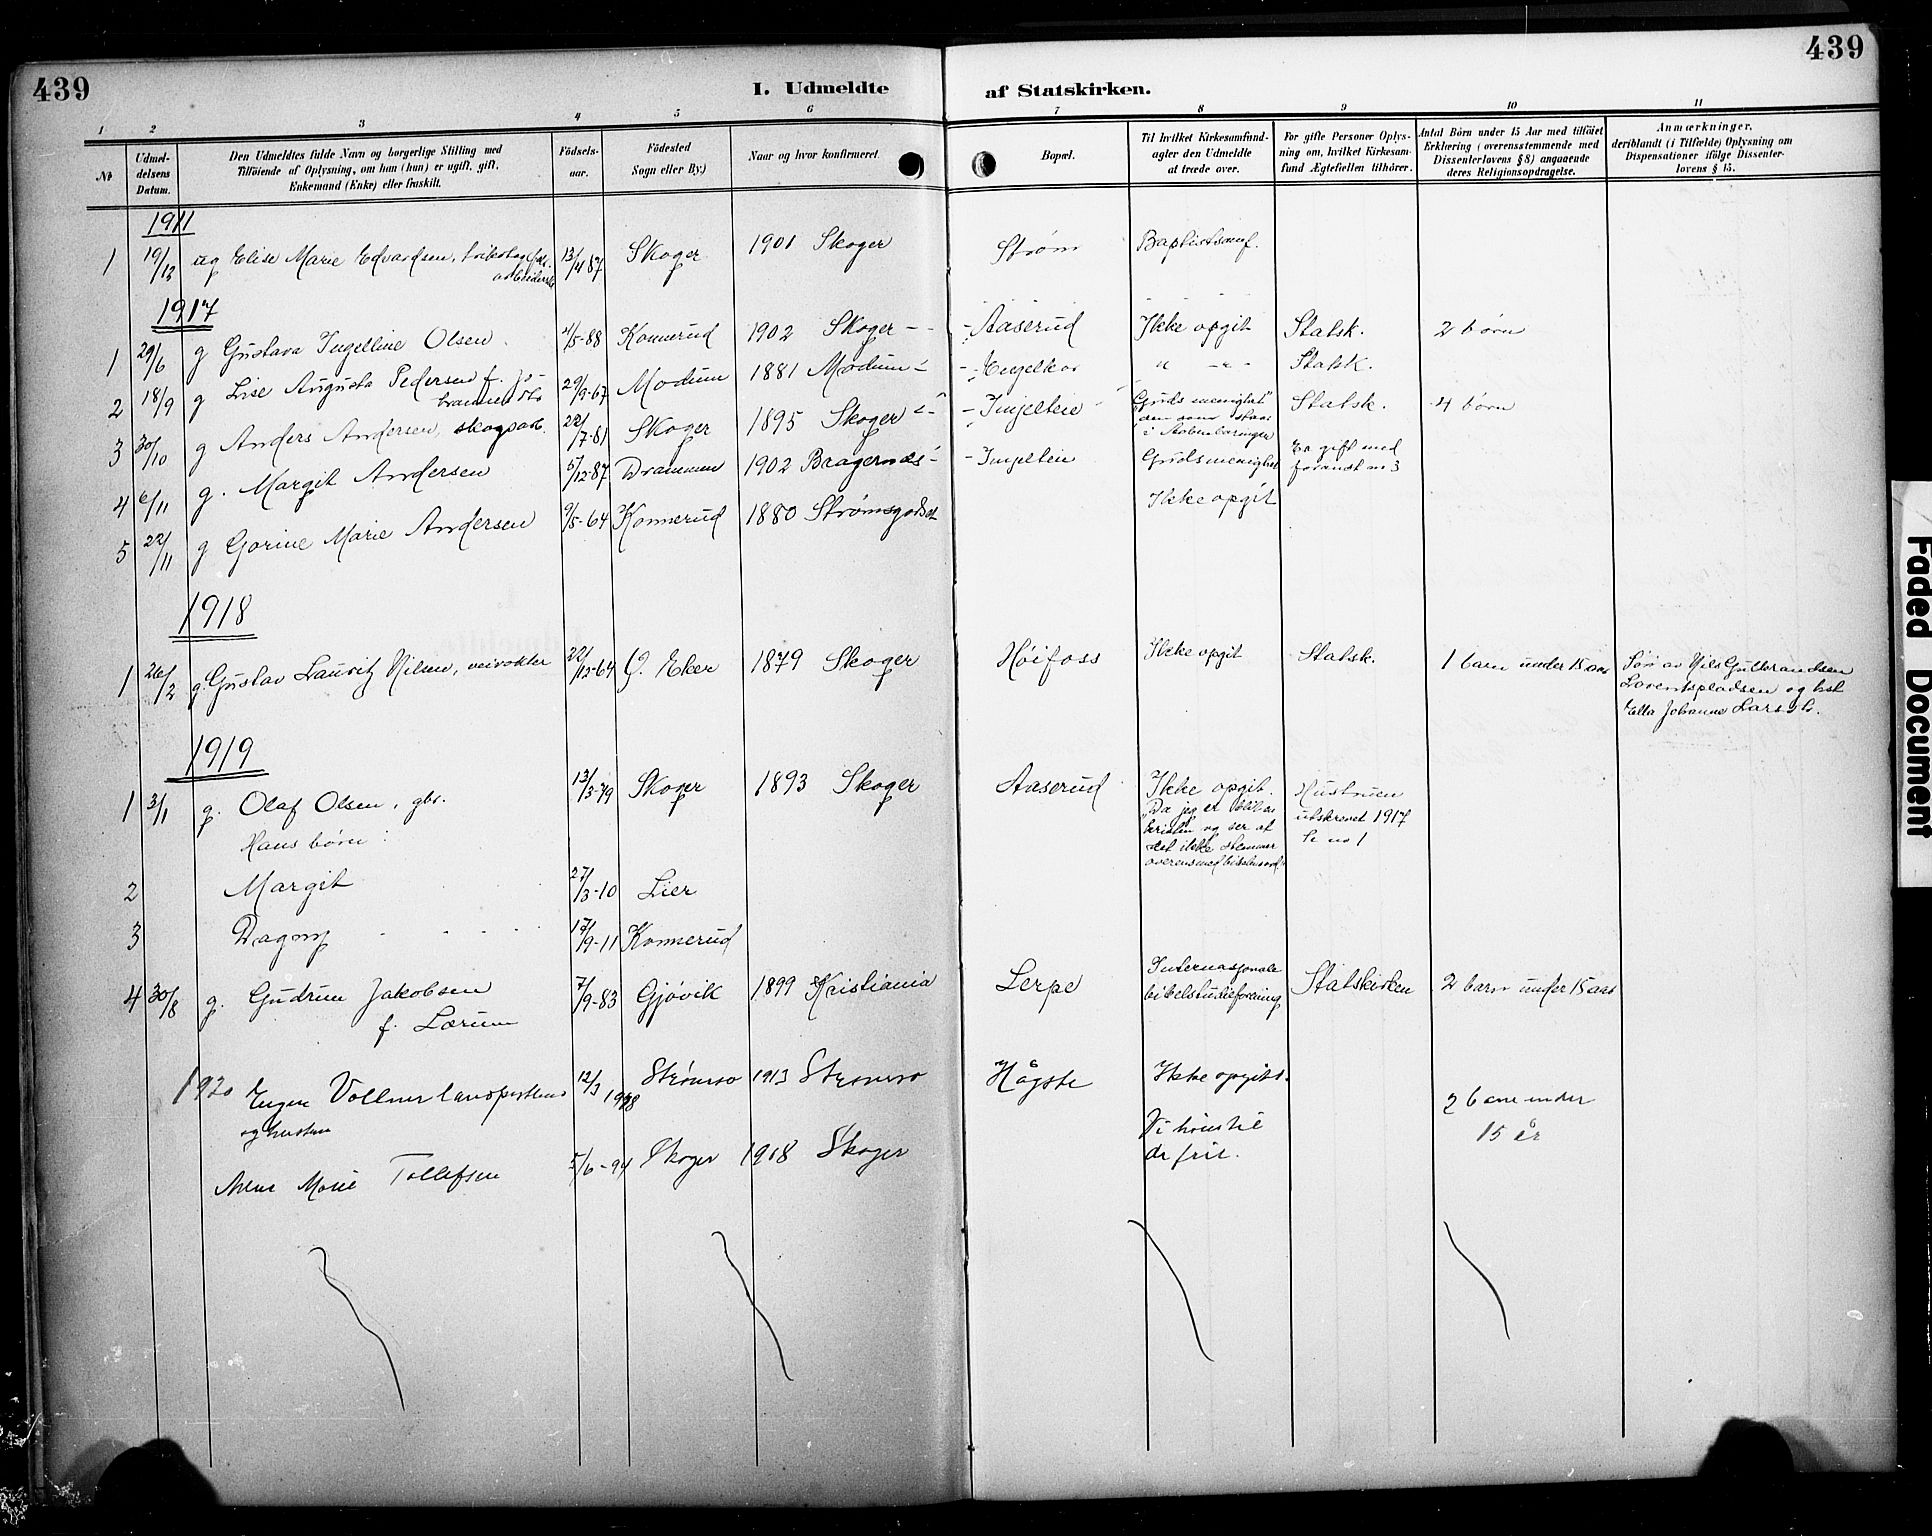 439
439
I. Udmeldte af Statskirken.
1 2 3 4 5 6 7 8 9 10 11
No
Udmel-
delsens
Datum.
Den Udmeldtes fulde Navn og borgerlige Stilling med
Tilföiende af Oplysning, om han (hun) er ugift, gift,
Enkemand (Enke) eller fraskilt.
Födsels-
aar.
Födested
Sogn eller By.)
Naar og hvor konfirmeret
Bopæl.
Til hvilket Kirkesamfund-
agter den Udmeldte
at træde over.
For gifte Personer Oplys-
ning om, hvilket Kirkesam-
fund Ægtefællen tilhörer.
Antal Börn under 15 Aar med tilföiet
Erklæring (overensstemmende med
Dissenterlovens § 8) angaaende
deres Religionsopdragelse.
Anmærkninger,
deriblandt (i Tilfælde) Oplysning om
Dispensationer ifölge Dissenter-
lovens § 15.
1911
1 19/12 ug Elise Marie Edvardsen, 13/4 87 Skoger 1901 Skoger Strøm Baptistsamf.
arbeiderske
1917
1 29/6 g Gustava Ingelline Olsen 4/5-88 Konnerud 1902 Skoger - - - Aaserud Ikke opgit Statsk. 2 børn
2 18/9 g Lise Augusta Pedersen f. Jo- 29/9-67 Modum 1881 Modum - " - " - Statsk.
hannesdtr
3 30/10 g Anders Andersen, skogsarb. 22/7-81 Skoger 1895 Skoger - Injelteie "Guds menighet" Statsk. 4 børn
den som staar
i Aabenbaringen
4 6/11 g. Margit Andersen 5/12-87 Drammen 1902 Bragernæs - Injelteie Guds menighet Er gift med
foranst. nr 3
5 22/11 g Gorine Marie Andersen 9/5-64 Konnerud 1880 Strømsgodset Ikke opgit
1918
1 26/2 g. Gustav Lauritz Nilsen, veivokter 22/12-64 Ø. Eker 1879 Skoger Høifoss Ikke opgit Statsk. 1 barn under 15 aar Søn av Nils Gulbrandsen
Lorentspladsen og hst
Ella Johanne Larsdtr.
1919
1 3/1 g. Olaf Olsen, gbr. 13/3-79 Skoger 1893 Skoger Aaserud Ikke opgit. Hustruen
"Da jeg er blit en utskrevet 1917
kristen og ser at se no 1
det ikke stemmer
overens med bibelens ord"
Hans børn:
2 Margit 27/3-10 Lier
3 Dagny 17/9-11 Konnerud
4 30/8 g. Gudrun Jakobsen 7/9-83 Gjøvik 1899 Kristiania Lerpe Internasjonale Statskirken 2 barn under 15 aar
f. Lærum bibelstudieforening
1920 Eugen Vollmer 12/3 1898 Strømsø 1913 Strømsø Hågste Ikke opgitt. 2 barn under
og hustru 15 år
Vi hører til
de frie.
Anna Marie Tollefsen 5/6-94 Skoger 1918 Skoger
Faded Document